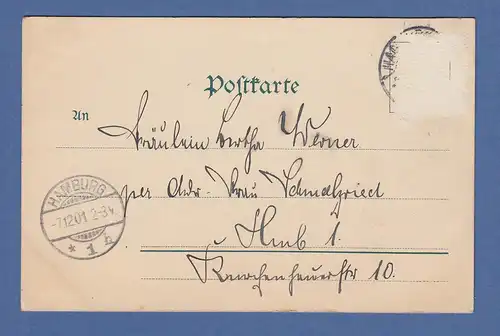 Postkarte
An
Fräulein Bertha Werner
per Adr. Frau Schmalfried
Hmb 1.
Knochenhauerstr 10.
HAMBURG
-7.12.01. 2-3 N.
* 1 h